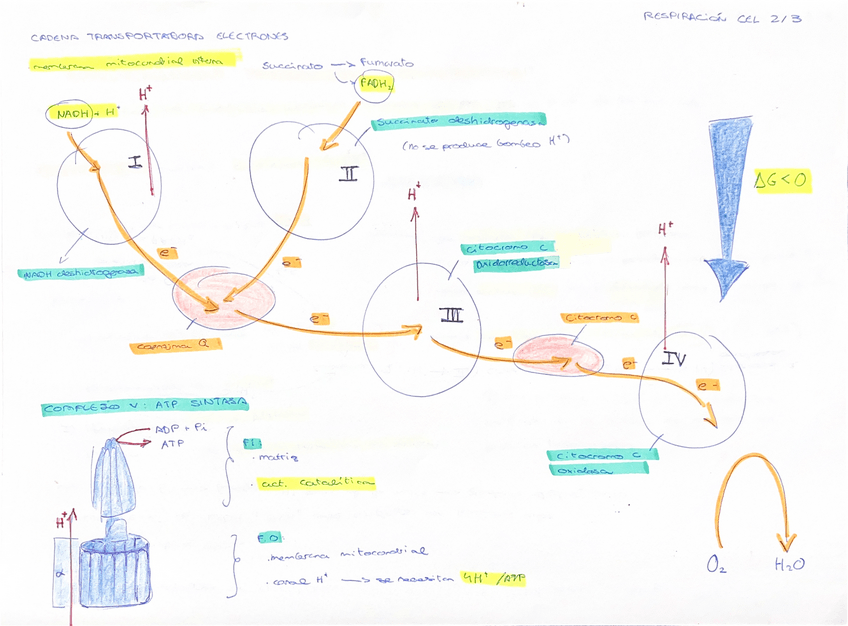 RESPIRACIÓN CEL 2/3
CADENA TRANSPORTADORA ELECTRONES
membrana mitocondrial interna
Succinato → Fumarato
FADH₂
NADH + H⁺
H⁺
I
II
Succinato deshidrogenasa
(no se produce bombeo H⁺)
ΔG<0
NADH deshidrogenasa
e⁻
e⁻
H⁺
Citocromo C
oxidoreductasa
H⁺
III
Coenzima Q
e⁻
e⁻
Citocromo C
e⁻
IV
e⁻
Citocromo C
oxidasa
O₂
H₂O
COMPLEJO V: ATP SINTASA
ADP + Pi
ATP
F1
. matriz
. act. catalítica
H⁺
α
FO
. membrana mitocondrial
. canal H⁺ → se necesitan 4H⁺/ATP